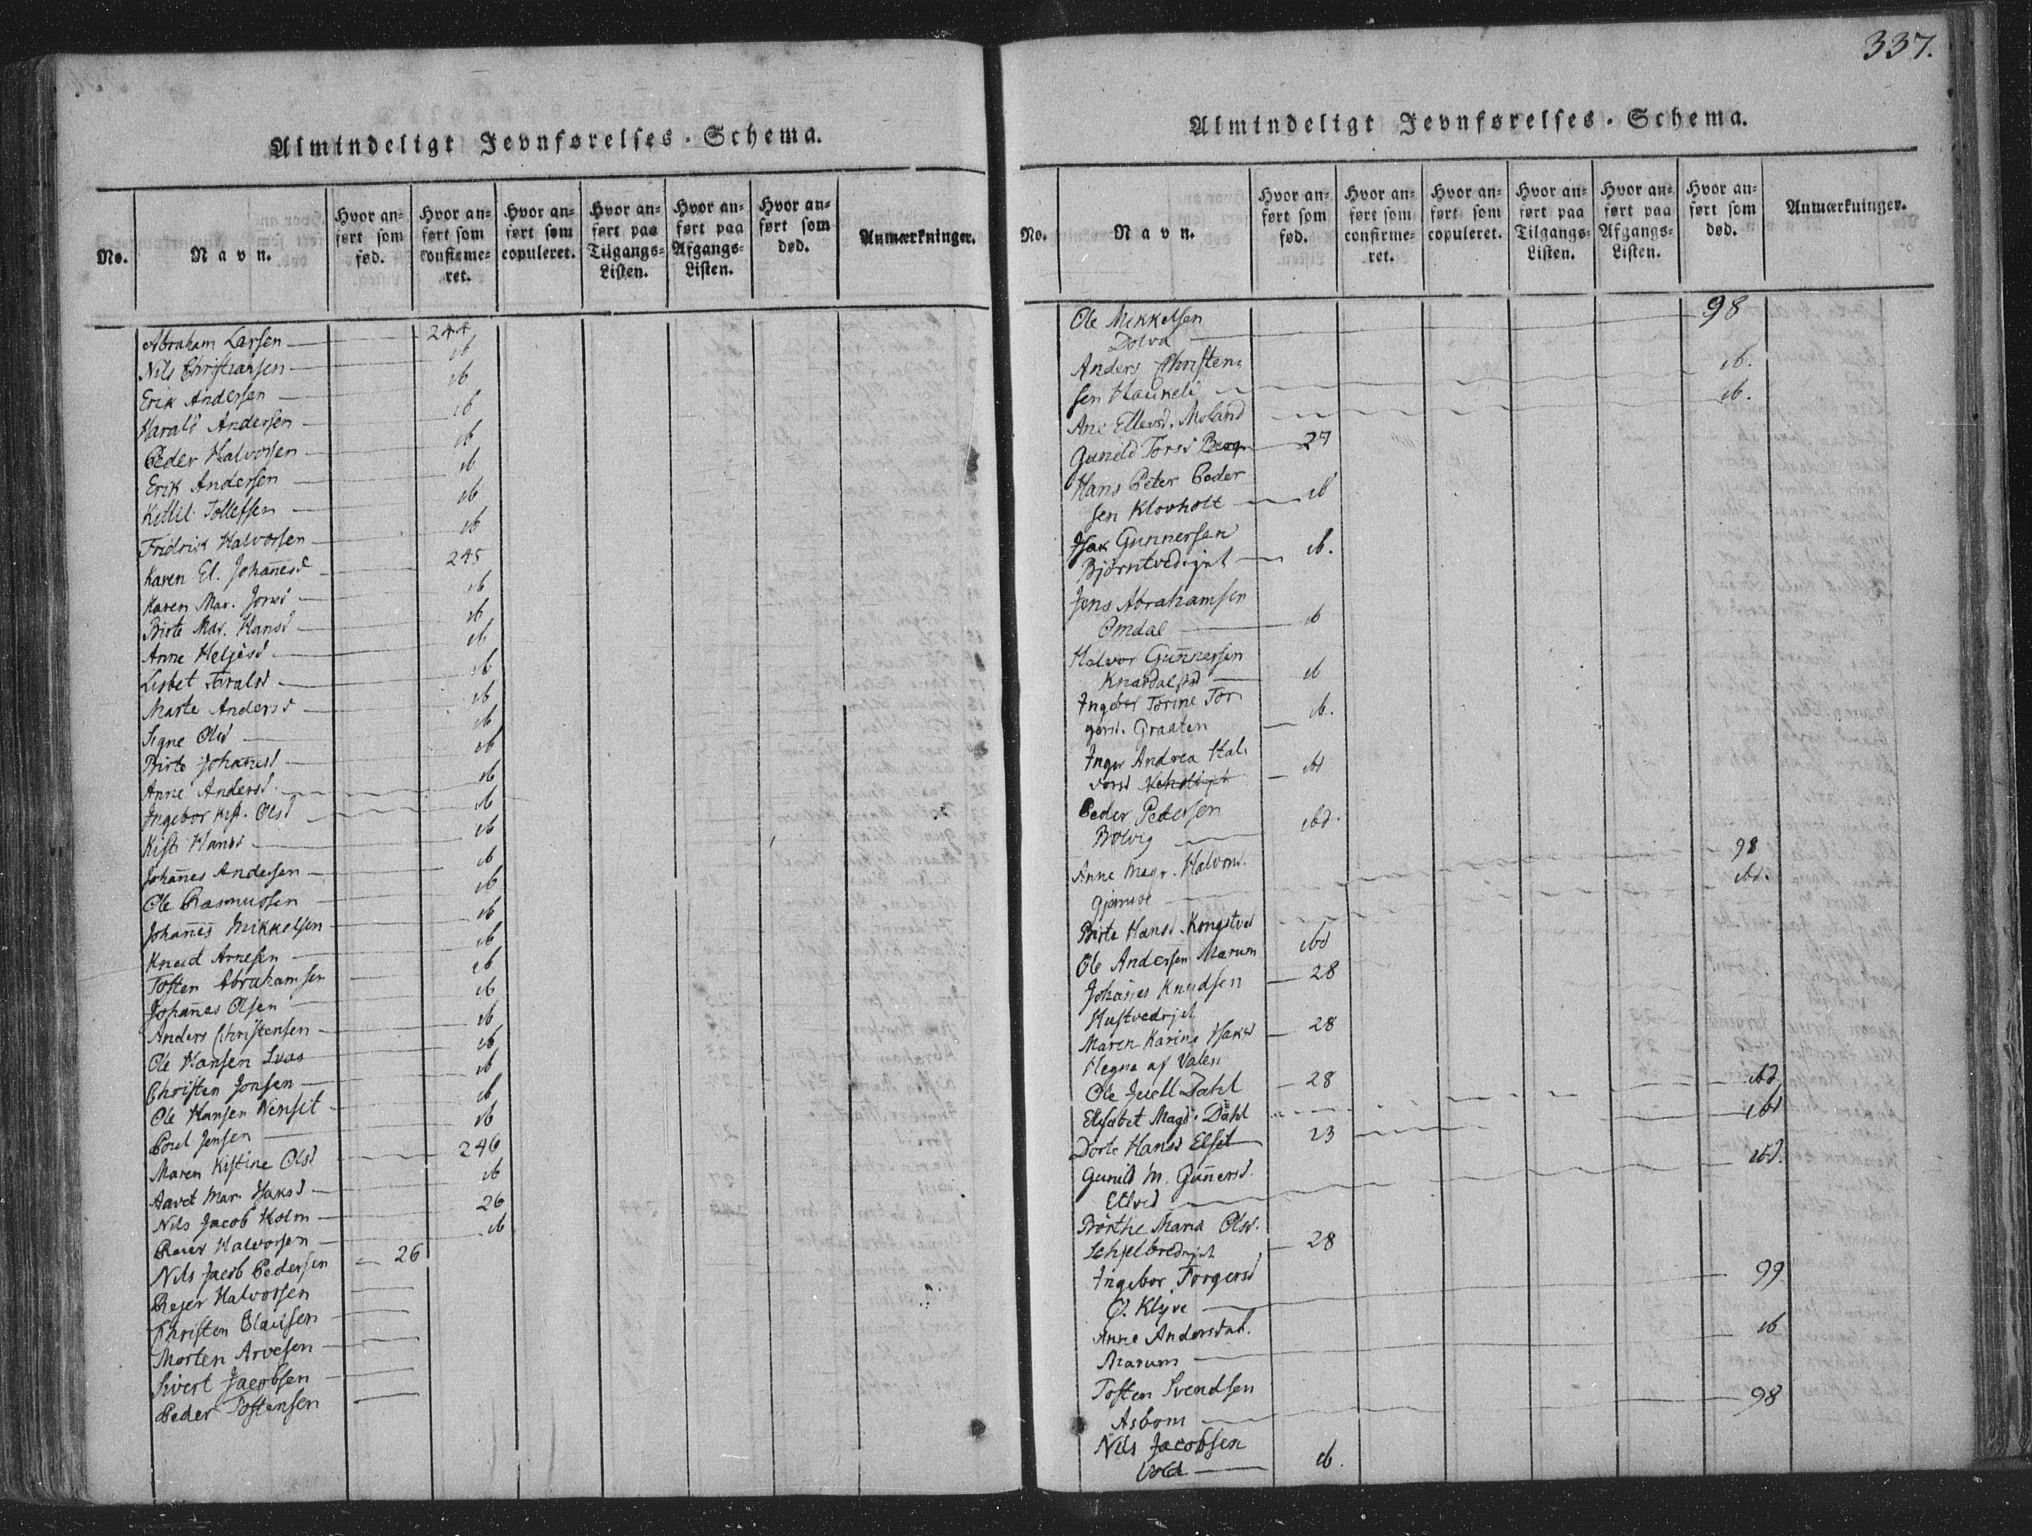 337.
Almindeligt Jevnførelses-Schema.
No. Navn. Hvor anført som fød. Hvor anført som confirmeret. Hvor anført som copuleret. Hvor anført paa Tilgangs-Listen. Hvor anført paa Afgangs-Listen. Hvor anført som død. Anmærkninger.
Abraham Larsen 244
Nils Christiansen ib
Erik Andersen ib
Harald Andersen ib
Peder Halvorsen ib
Erik Andersen ib
Kittil Tollefsen ib
Fridrik Halvorsen ib
Karen El. Johañesd 245
Karen Mar. Jonsd ib
Birte Mar. Hansd ib
Anne Heljesd ib
Lisbet ib
Marte Andersd ib
Signe Olsd ib
Birte Johañesd ib
Anne Andersd. ib
Ingebor Kist. Olsd ib
Kist. Hansd ib
Johañes Andersen ib
Ole Rasmussen ib
Johañes Mikkelsen ib
Knud Arnesen ib
Tosten Abrahamsen ib
Johañes Olsen ib
Anders Christensen ib
Ole Hansen ib
Christen Jonsen ib
Ole Hansen ib
Poul Jensen ib
Maren Kistine Olsd 246
Aavet Mar. Isaksd ib
Nils Jacob Holm 26
Reier Halvorsen ib
Nils Jacob Pedersen 26
Rejer Halvorsen
Christen Clausen
Morten Arvesen
Sivert Jacobsen
Peder Tostensen
Almindeligt Jevnførelses-Schema.
No. Navn. Hvor anført som fød. Hvor anført som confirmeret. Hvor anført som copuleret. Hvor anført paa Tilgangs-Listen. Hvor anført paa Afgangs-Listen. Hvor anført som død. Anmærkninger.
Ole Mikkelsen 98
Dolva
Anders Christen= ib.
sen Haukeli ib.
Ane Ellevsd. Moland
Gunild Torsd Berg 27
Hans Peter Peder
sen Klovholt ib
Isak Gunnersen
Bjørntvedejet ib.
Jens Abrahamsen
Omdal ib
Halvor Guñersen
Knardalstrd ib
Ingebor Torine Tor
gersd. Graaten ib.
Inger Andrea Hal
vorsd ibd
Peder Pedersen
Bolvig ibd.
Anne Magr. Halvorsd. 98
Gjømsøe ibd.
Birte Hansd. Kongstved
Ole Andersen Marum ibd
Johañes Knudsen 28
Hustvedejet
Maren Karine Isaksd 28
Hegna af Valen
Ole Juell Dahl 28 ibd
Elisabet Magd. Dahl ibd
Dorte Hansd Elset 23
Gunild M. Guñersd. ibd.
Ettved
Børthe Maria Olsd.
Schjelbredejet 28
Ingebor Torgersd 99
Ø. Klyve
Anne Andersdat. ib
Marum
Tosten Svendsen 98
Asbom
Nils Jacobsen
Vold ib.